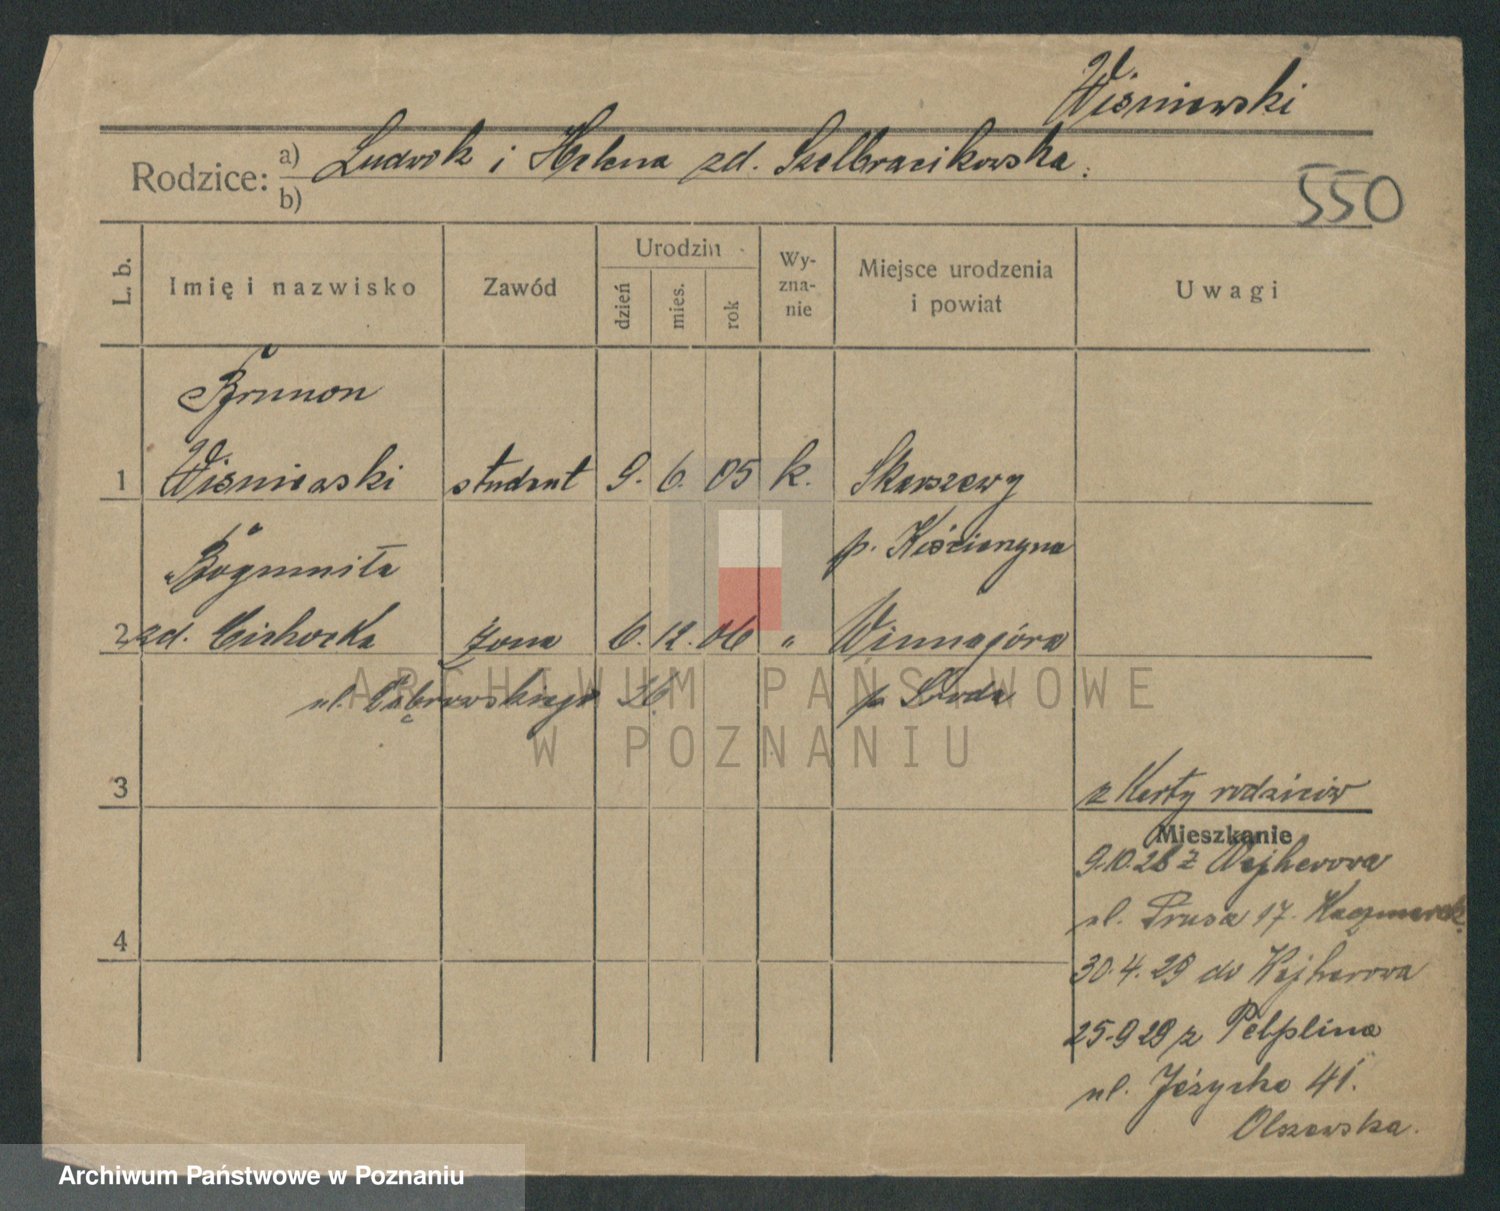 Wiśniewski
Rodzice: a) Ludwik i Helena zd. Szelbracikowska.
b)
550
L. b.
Imię i nazwisko
Zawód
Urodzin
dzień
mies.
rok
Wy-
zna-
nie
Miejsce urodzenia
i powiat
Uwagi
Brunon
1 Wiśniewski student 9. 6. 05 k. Skarszewy
p. Kościerzyna
Bogumiła
2 zd. Cichocka żona 6. 12. 06 " Winnagóra
ul. Dąbrowskiego 36 p Środa
3
z Karty rodziców
Mieszkanie
9.10.28 z Wejherowa
ul. Prusa 17. Kaczmarek
4
30.4.29 do Wejherowa
25.9 29 z Pelplina
ul. Jeżycka 41.
Olszewska.
ARCHIWUM PAŃSTWOWE
W POZNANIU
Archiwum Państwowe w Poznaniu